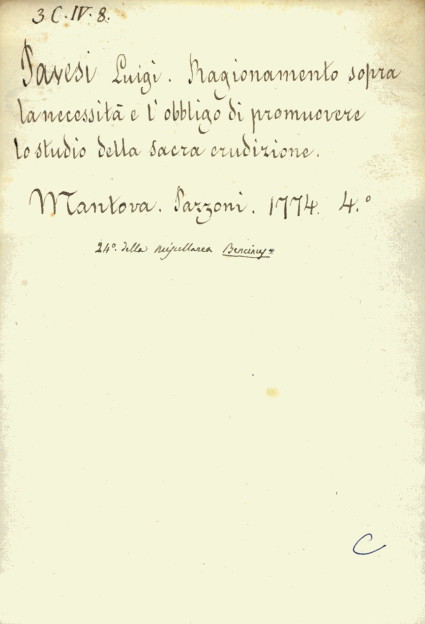 3 C. IV. 8.
Pavesi Luigi. Ragionamento sopra
la necessità e l'obbligo di promuovere
lo studio della sacra erudizione.
Mantova. Pazzoni. 1774. 4.º
24º. della
C